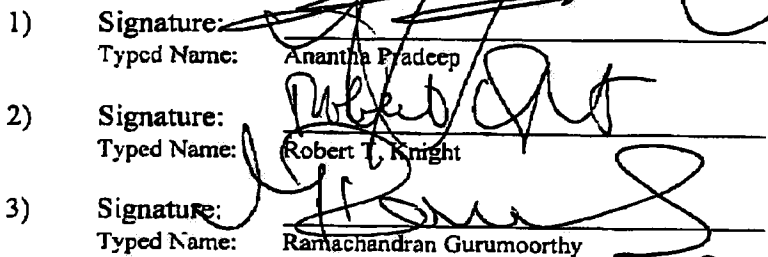 1) Signature:
Typed Name: Anantha Pradeep
2) Signature: Robert
Typed Name: Robert T. Knight
3) Signature:
Typed Name: Ramachandran Gurumoorthy